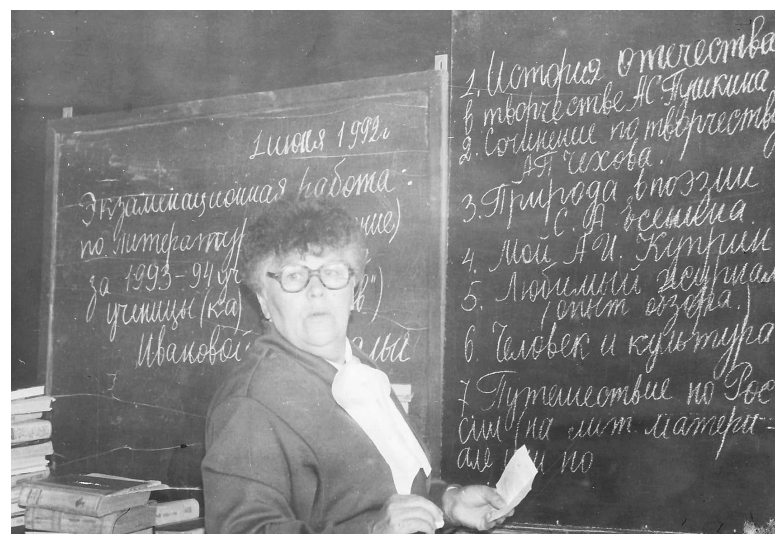 1 июня 1992г
Экзаменационная работа
по литератур ние)
за 1993-94 уч
ученицы(ка) в")
Ивановой
1. История отечества
в творчестве А.С. Пушкина
2. Сочинение по творчеству
А.П. Чехова.
3. Природа в поэзии
С. А. Есенина.
4. Мой А. И. Куприн
5. Любимый журнал
(опыт обзора.)
6. Человек и культура
7 Путешествие по Рос
сии (на лит матери-
але или по